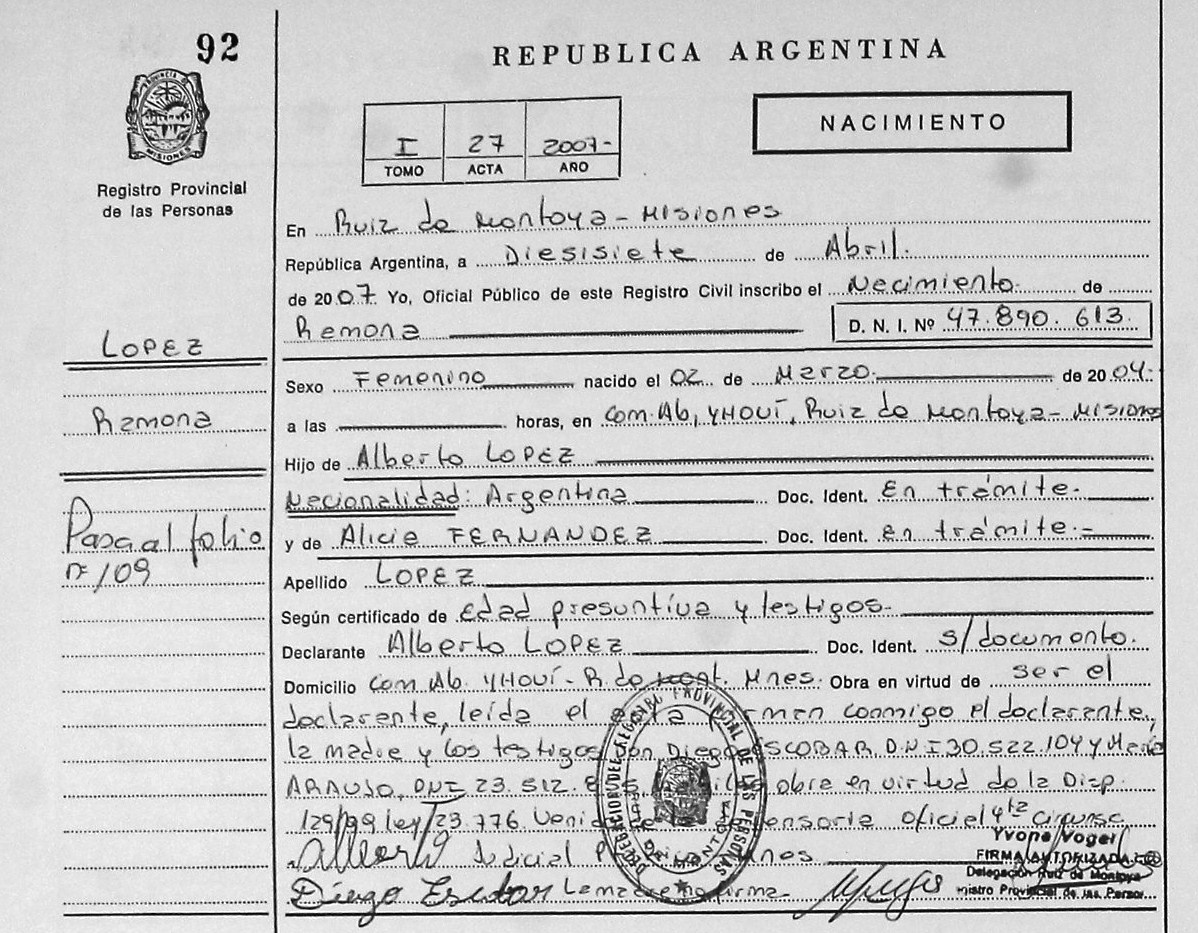 92
REPUBLICA ARGENTINA
PROVINCIA D
MISIONES
Registro Provincial
de las Personas
I 27 2007-
TOMO ACTA AÑO
NACIMIENTO
En Ruiz de Montoya - Misiones
República Argentina, a Diesisiete de Abril.
de 2007. Yo, Oficial Público de este Registro Civil inscribo el Nacimiento de
Ramona D. N. I. Nº 47.890.613.
LOPEZ
Ramona
Pasa al folio
nº 109
Sexo Femenino nacido el 02 de Marzo. de 2004.
a las horas, en Com. Ab, YHOVÍ, Ruiz de Montoya - Misiones
Hijo de Alberto LOPEZ
Nacionalidad: Argentina Doc. Ident. En trámite.
y de Alicia FERNANDEZ Doc. Ident. en trámite.=
Apellido LOPEZ
Según certificado de edad presuntiva y testigos.
Declarante Alberto LOPEZ Doc. Ident. s/documento.
Domicilio Com. Ab. YHOVÍ - R. de Mont. Mnes. Obra en virtud de ser el
declarante, leída el firman conmigo el declarante,
la madre y los testigos Don Diego ESCOBAR D.N.I 30.522.104 y
ARAUJO, DNI 23.512. obra en virtud de la Disp.
129/99 ley 23.776. oficial 4ta circunsc.
Judicial
Yvone Vogel
FIRMA AUTORIZADA
Delegación Ruiz de Montoya
Registro Provincial de las Person
Alberto
Diego Escobar La madre no firma.
DELEGACION DEL REGISTRO PROVINCIAL DE LAS PERSONAS
RUIZ DE MONTOYA